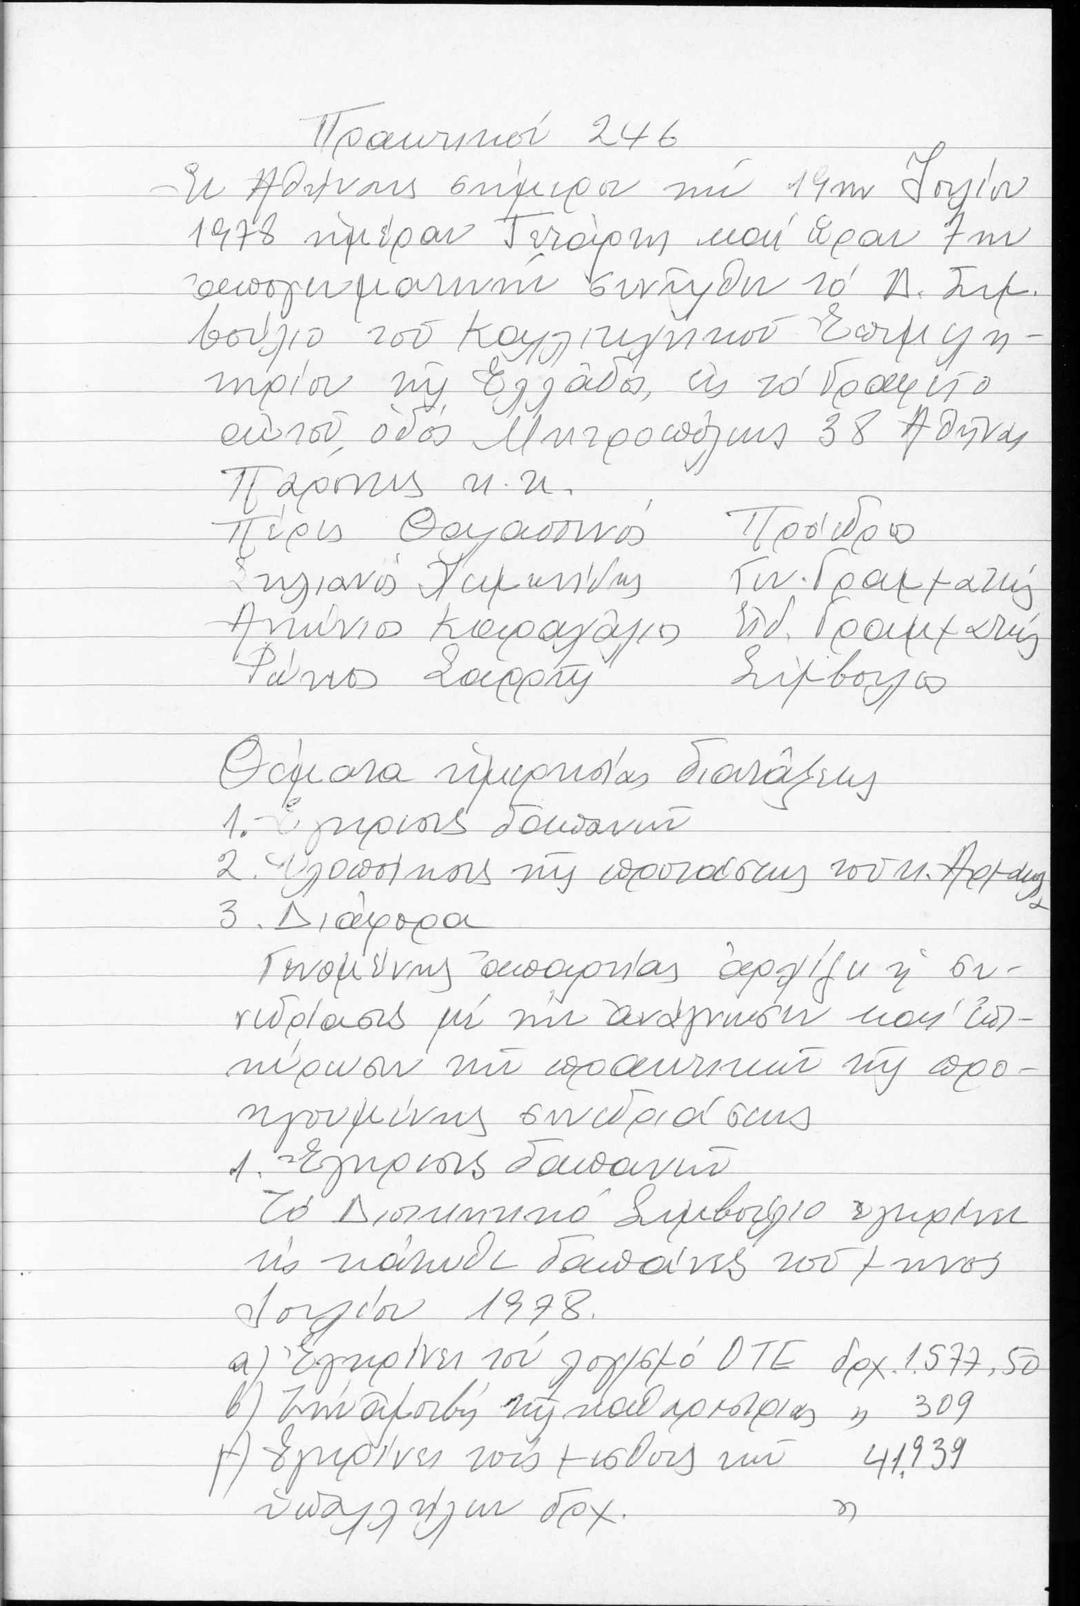 Πρακτικόν 246
Ἐν Ἀθήναις σήμερον τήν 19ην Ἰουλίου
1978 ἡμέραν Τετάρτη καί ὥραν 7ην
ἀπογευματινήν συνῆλθεν τό Δ. Συμ.
βούλιο τοῦ Καλλιτεχνικοῦ Ἐπιμελη-
τηρίου τῆς Ἑλλάδος, εἰς τό Γραφεῖο
αὐτοῦ, ὁδός Μητροπόλεως 38 Ἀθῆναι
Παρόντες κ.κ.
Πέρις Θαλασσινός Πρόεδρος
Στυλιανός Γεν. Γραμματεύς
Ἀντώνιος Καραχάλιος Εἰδ. Γραμματεύς
Φώτιος Σαρρῆς Σύμβουλος
Θέματα ἡμερησίας διατάξεως
1. Ἔγκρισις δαπανῶν
2. Ὑλοποίησις τῆς προτάσεως τοῦ κ.
3. Διάφορα
Γενομένης ἀπαρτίας ἀρχίζει ἡ συ-
νεδρίασις μέ τήν ἀνάγνωσιν καί ἐπι-
κύρωσιν τῶν πρακτικῶν τῆς προ-
ηγουμένης συνεδριάσεως
1. Ἔγκρισις δαπανῶν
Τό Διοικητικό Συμβούλιο ἐγκρίνει
τίς κάτωθι δαπάνες τοῦ μηνός
Ἰουλίου 1978.
α) Ἐγκρίνει τόν λογ/σμό ΟΤΕ δρχ. 1.577,50
β) Τήν ἀμοιβή τῆς καθαριστρίας " 309
γ) Ἐγκρίνει τούς μισθούς τῶν 41.939
ὑπαλλήλων δρχ. "